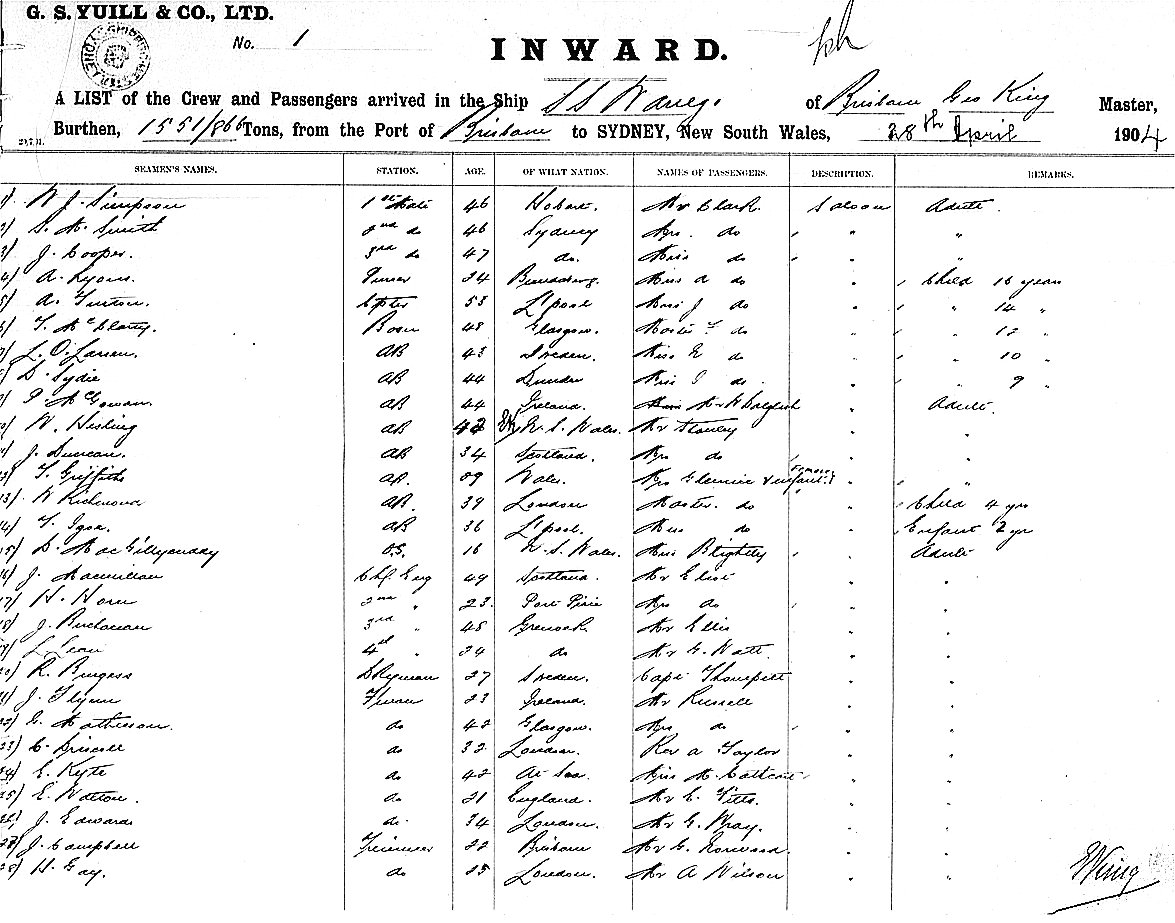 G. S. YUILL & CO., LTD.
No. 1
INWARD.
A LIST of the Crew and Passengers arrived in the Ship S S of Brisbane Geo King Master,
Burthen, 1551/866 Tons, from the Port of Brisbane to SYDNEY, New South Wales, 28th April 1904
SEAMEN'S NAMES. STATION. AGE. OF WHAT NATION. NAMES OF PASSENGERS. DESCRIPTION. REMARKS.
1) W J. Simpson 1st Mate 46 Hobart. Mr Clark. Saloon Adult
2) S. H. Smith 2nd do 46 Sydney Mrs. do " "
3) J. Cooper. 3rd do 47 do. Miss do " "
4) A. Lyons. Purser 24 Bundaberg. Miss A do " Child 16 years
5) A. 53 L'pool Miss J do " " 14 "
6) T. Boson 48 Glasgow. Master T do " " 12 "
7) L. O. Larsen. AB 43 Sweden. Miss do " " 10 "
D. Lydie AB 44 Dundee Miss do " " 9 "
P. McGowan. AB 44 Ireland. Mr W Dalgleish " Adult.
W. Hisling AB 42 N. S. Wales. Mr Stanley " "
J. Duncan. AB 34 Scotland. Mrs do " "
T. Griffiths AB. Wales. Mrs & infant " "
13) W Richmond AB. 39 London Master. do " Child 4 yrs
14) T. AB 36 L'pool. Miss do " Infant 2 yr
15) D. MacGillycuddy O.S. 16 N. S. Wales. Miss " Adult
16) J. Macmillan Chf. Eng 49 Scotland. Mr " "
17) H. Horn 2nd " 23. Port Pirie Mrs do " "
18) J. Buchanan 3rd " 48 Greenock Mr Ellis " "
L. Lean 4th " 24 do Mr G. Watt. " "
20) R. Burgess Dkyman 27 Sweden. Capt " "
21) J. Flynn Fireman 23 Ireland. Mr Russell " "
22) G. Matheson. do 42 Glasgow. Mrs do " "
23) C. Driscoll do 32 London. Rev A Taylor " "
24) E. Kyte do 42 At Sea. Miss M. " "
25) E. Walton. do 21 England. Mr C. " "
26) J. Edwards do 34 London. Mr G. Wray. " "
J. Campbell Trimmer 22 Brisbane Mr G. Norwood. " "
28) H. Gay. do 25 London. Mr A Wilson " "